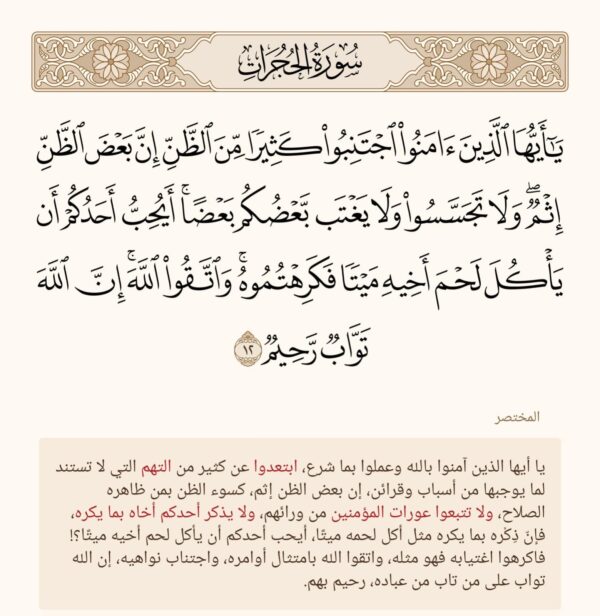 سُورَةُ الحُجُرَاتِ
يَٰٓأَيُّهَا ٱلَّذِينَ ءَامَنُوا۟ ٱجْتَنِبُوا۟ كَثِيرًۭا مِّنَ ٱلظَّنِّ إِنَّ بَعْضَ ٱلظَّنِّ
إِثْمٌۭ ۖ وَلَا تَجَسَّسُوا۟ وَلَا يَغْتَب بَّعْضُكُم بَعْضًا ۚ أَيُحِبُّ أَحَدُكُمْ أَن
يَأْكُلَ لَحْمَ أَخِيهِ مَيْتًۭا فَكَرِهْتُمُوهُ ۚ وَٱتَّقُوا۟ ٱللَّهَ ۚ إِنَّ ٱللَّهَ
تَوَّابٌۭ رَّحِيمٌۭ ١٢
المختصر
يا أيها الذين آمنوا بالله وعملوا بما شرع، ابتعدوا عن كثير من التهم التي لا تستند
لما يوجبها من أسباب وقرائن، إن بعض الظن إثم، كسوء الظن بمن ظاهره
الصلاح، ولا تتبعوا عورات المؤمنين من ورائهم، ولا يذكر أحدكم أخاه بما يكره،
فإنّ ذِكْره بما يكره مثل أكل لحمه ميتًا، أيحب أحدكم أن يأكل لحم أخيه ميتًا؟!
فاكرهوا اغتيابه فهو مثله، واتقوا الله بامتثال أوامره، واجتناب نواهيه، إن الله
تواب على من تاب من عباده، رحيم بهم.